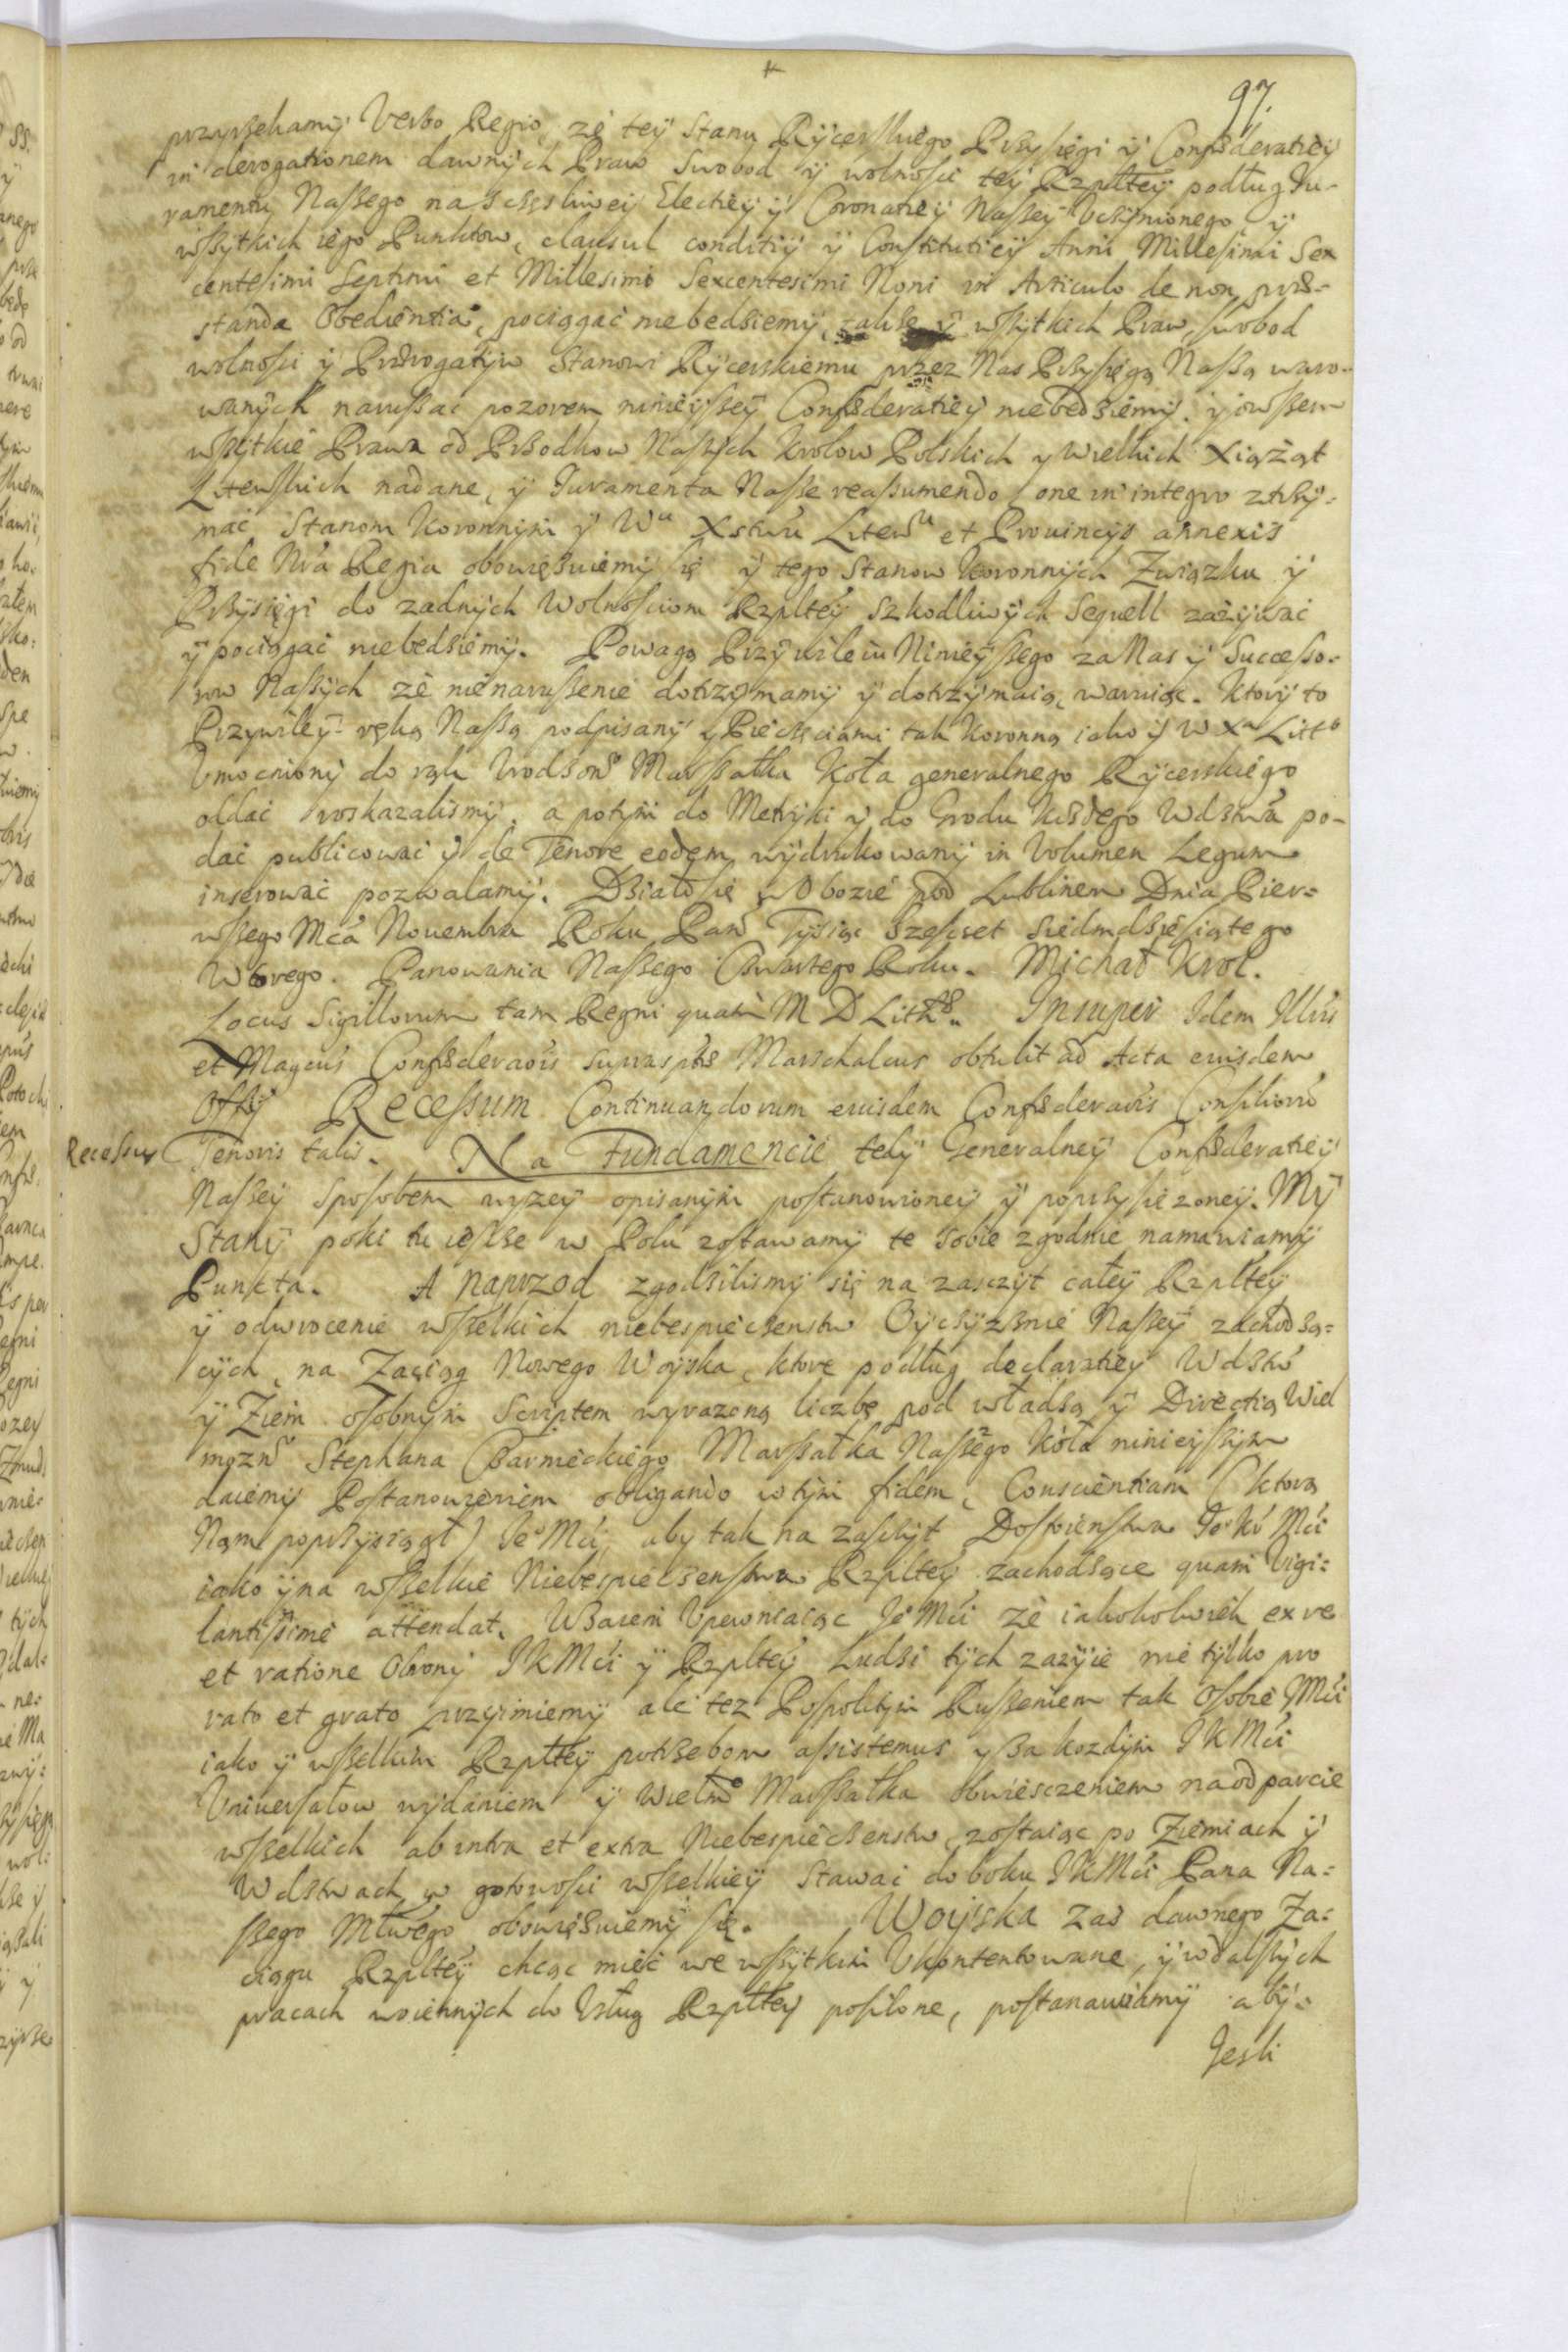 97.
przyrzekamy Verbo Regio, że tey Stanu Rycerskiego Przysięgi y Confæderatiey
in derogationem dawnych Praw Swobod y wolnosci tey Rzpltey podług Iu-
ramentu Naszego na sczęsliwei Electiey y Coronatiey Naszey Vczynionego y
wszytkich iego Punktow, clausul conditiy y Constitutiey Anni Millesimi Sex
centesimi Septimi et Millesimi Sexcentesimi Noni in Articulo de non præ-
standa Obedientia, pociągać niebedziemy, takze y wszytkich Praw, swobod
wolnosci y Prærogatyw Stanowi Rycerskiemu przez Nas Przysięgą Naszą waro-
wanych naruszać pozorem ninieyszey Confæderatiey niebędziemy. y owszem
wszytkie Prawa od Przodkow Naszych Krolow Polskich y Wielkich Xiążąt
Litewskich nadane, y Iuramenta Nasze reassumendo one in integro ztrzy-
mać Stanom Koronnym y Wu Xstwu Litewu et Provincys annexis
fide Nra Regia obowięzuiemy się y tego Stanow Koronnych Związku y
Przysięgi do zadnych Wolnosciom Rzpltey Szkodliwych Sequell zażywać
y pociągać niebedziemy. Powagą Przywileiu Ninieyszego za Nas y Successo-
row Naszych że nienaruszenie dotrzymamy y dotrzymaią, waruiąc. Ktory to
Przywiley ręką Naszą podpisany y Pieczęciami tak Koronną iako y W Xa Litto
Vmocniony do rąk Vrodzone Marszałka Koła generalnego Rycerskiego
oddać roskazalismy, a potym do Metryki y do Grodu Kazdego Wdztwa po-
dać publicować y de Tenore eodem wydrukowany in Volumen Legum
inserować pozwalamy. Działo się w Obozie pod Lublinem Dnia Pier-
wszego Mca Novembra Roku Pan Tysiąc Szescset Siedmdziesiątego
Wtorego. Panowania Naszego Czwartego Roku. Michał Krol.
Locus Sigillorum tam Regni quam M D Lith. Insuper Idem Illris
et Magcus Confæderaois supraspts Marschalcus obtulit ad Acta eiusdem
Offy Recessum Continuandorum eiusdem Confæderaois Consiliorū
Recessus
Tenoris talis. Na Fundamencie tedy Generalney Confæderatiey
Naszey Sposobem wyzey opisanym postanowioney y poprzysięzoney. My
Stany poki tu iescze w Polu zostawamy te sobie zgodnie namawiamy
Punkta. A naprzod zgodzilismy się na zasczyt całey Rzpltey
y odwrocenie wszelkich niebespieczenstw Oyczyznie Naszey zachodzą-
cych, na Zaciąg Nowego Woyska, ktore podług declaratiey Wdztw
y Ziem osobnym Scriptem wyrazoną liczbę pod władzą y Directią Wiel
mozne Stephana Czarnieckiego Marszałka Naszego Koła ninieyszym
daiemy Postanowieniem obligando w tym fidem, Conscientiam (ktorą
Nam poprzysiągł) Je Mci, aby tak na zasczyt Dostoienstwa Je Kr Mci
iako y na wszelkie Niebespieczenstwa Rzpltey zachodzące quam Vigi-
lantissime attendat. Wzaiem Vpewniaiąc Je Mci że iakokolwiek ex re
et ratione Obrony J K Mci y Rzpltey Ludzi tych zazyie nie tylko pro
rato et grato przyimiemy ale tez Pospolitym Ruszeniem tak Osobie Mci
iako y wszelkim Rzpltey potrzebom assistemus y za kozdym J K Mci
Vniversałow wydaniem y Wielm Marszałka obwiesczeniem na odparcie
wszelkich ab intra et extra Niebespieczenstw, zostaiąc po Ziemiach y
Wdztwach w gotowosci wszelkiey Stawać do boku J K Mci Pana Na-
szego Młwego obowięzuiemy się. Woyska zas dawnego Za-
ciągu Rzpltey chcąc mieć we wszytkim Vkontentowane, y w dalszych
pracach woiennych do Vsług Rzpltey posilone, postanawiamy aby-
Jesli